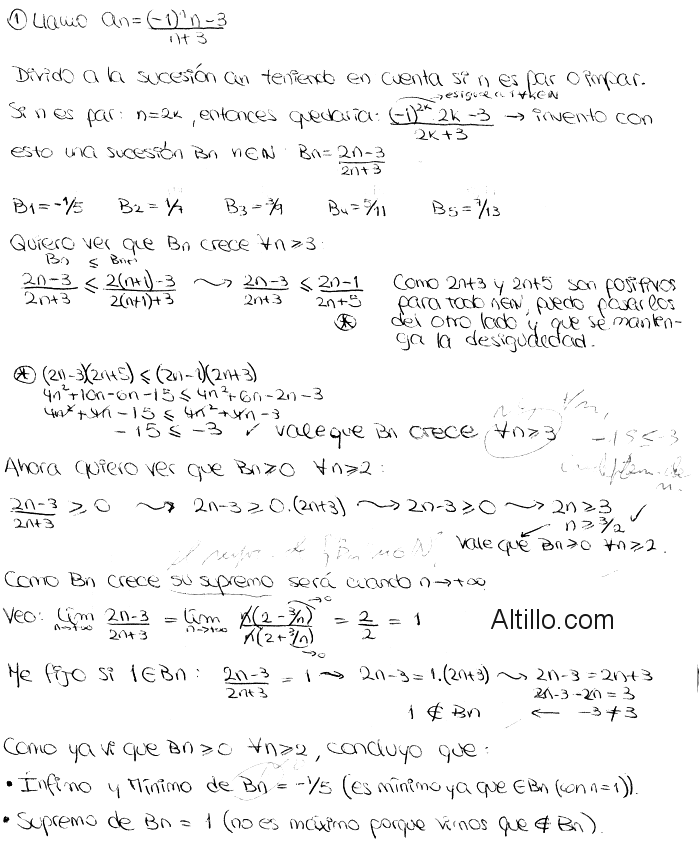 ① Llamo an = (-1)ⁿn-3 / n+3
Divido a la sucesión an teniendo en cuenta si n es par o impar.
→ es igual a 1 ∀k∈N
Si n es par: n=2k, entonces quedaría: (-1)^2k 2k-3 / 2k+3 → invento con
esto una sucesión Bn n∈N: Bn = 2n-3 / 2n+3
B1=-1/5 B2=1/7 B3=3/9 B4=5/11 B5=7/13
Quiero ver que Bn crece ∀n≥3:
Bn ≤ Bn+1
2n-3 / 2n+3 ≤ 2(n+1)-3 / 2(n+1)+3 ⇝ 2n-3 / 2n+3 ≤ 2n-1 / 2n+5 ⊛
Como 2n+3 y 2n+5 son positivos
para todo n∈N, puedo pasarlos
del otro lado y que se manten-
ga la desigualdad.
⊛ (2n-3)(2n+5) ≤ (2n-1)(2n+3)
4n²+10n-6n-15 ≤ 4n²+6n-2n-3
4n²+4n-15 ≤ 4n²+4n-3
-15 ≤ -3 ✓ vale que Bn crece ∀n≥3
-15≤-3
Ahora quiero ver que Bn≥0 ∀n≥2:
2n-3 / 2n+3 ≥ 0 ⇝ 2n-3 ≥ 0.(2n+3) ⇝ 2n-3≥0 ⇝ 2n≥3 ✓
n≥3/2
vale que Bn>0 ∀n≥2.
Como Bn crece su supremo será cuando n→+∞
Veo: lim n→+∞ 2n-3 / 2n+3 = lim n→+∞ n(2-3/n) / n(2+3/n) = 2/2 = 1
→0
→0
Altillo.com
Me fijo si 1∈Bn: 2n-3 / 2n+3 = 1 ⇝ 2n-3=1.(2n+3) ⇝ 2n-3=2n+3
2n-3-2n=3
1 ∉ Bn ← -3≠3
Como ya vi que Bn≥0 ∀n≥2, concluyo que:
• Ínfimo y Mínimo de Bn = -1/5 (es mínimo ya que ∈Bn (con n=1)).
• Supremo de Bn = 1 (no es máximo porque vimos que ∉ Bn).